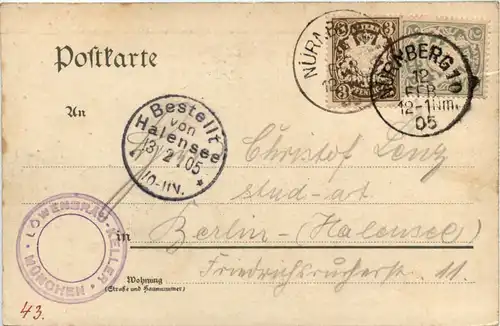 Postkarte
NÜRNBERG
3 3
NÜRNBERG 10
12
FEB
12-1 Nm.
05
An
Bestellt
von
Halensee
13/2 05
10-11V.
Christof Lenz
stud. art.
in Berlin - (Halensee)
Friedrichsruherstr. 11.
LÖWENBRÄU-KELLER • MÜNCHEN •
Wohnung
(Straße und Hausnummer)
43.